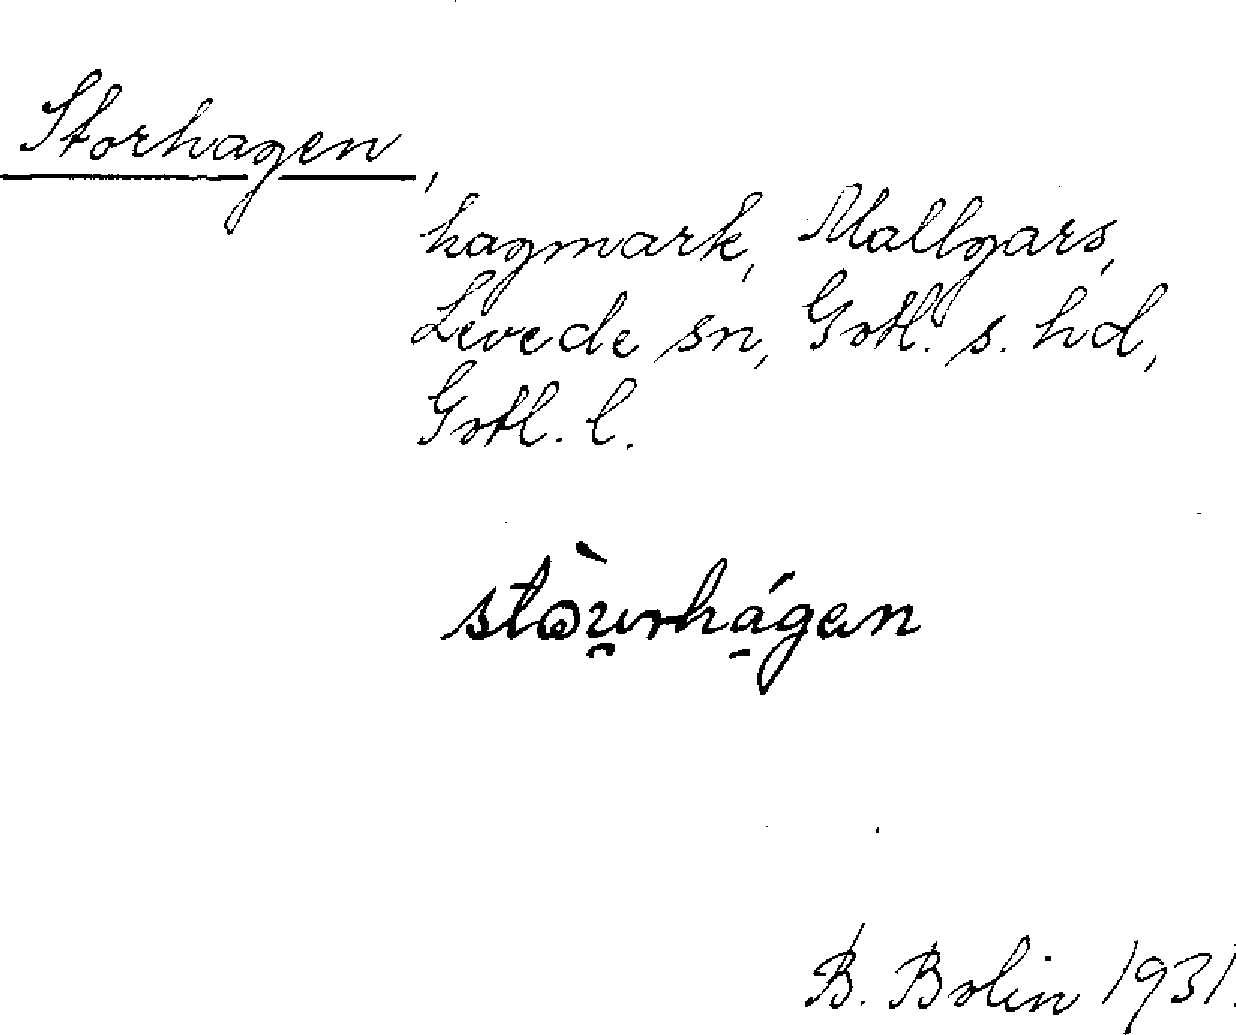 Storhagen,
hagmark, Mallgårs,
Levede sn, Gotl. s. hd,
Gotl. l.
stòu̯rhá̱gan
B. Bolin 1931.